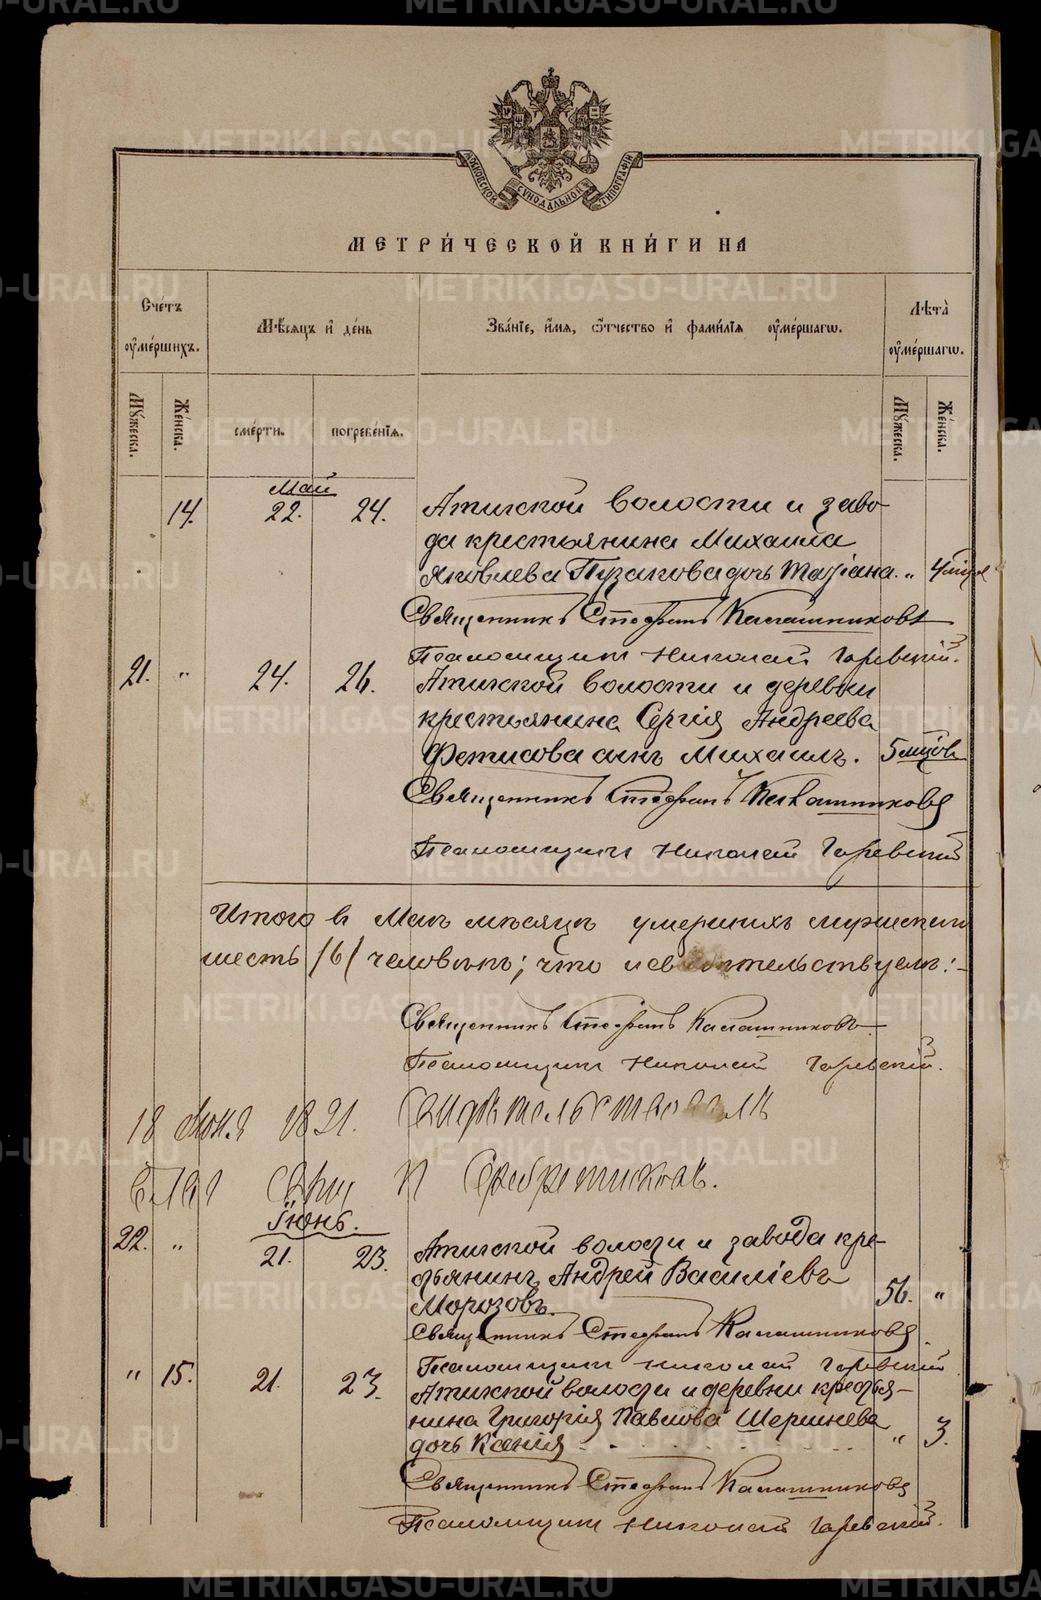 МОСКОВСКОЙ СѴНОДАЛЬНОЙ ТИПОГРАФІИ
МЕТРИ́ЧЕСКОЙ КНИ́ГИ НА
Сче́тъ оуме́ршихъ.
Мѣ́сяцъ и де́нь
Зва́нїе, и́мя, ѻ҆́тчество и фами́лїя оуме́ршагѡ.
Лѣ́та оуме́ршагѡ.
Му́жеска.
Же́нска.
сме́рти.
погребе́нїя.
Му́жеска.
Же́нска.
Май
14. 22. 24. Атигской волости и заво-
да крестьянина Михаила
Яковлева Пузакова дочь Татіана. „ 4 мѣся
Священникъ Стефанъ Калашниковъ
Псаломщикъ Николай Горевскій.
21. „ 24. 26. Атигской волости и деревни
крестьянина Сергія Андреева
Фетисова сынъ Михаилъ. 5 мѣсцов
Священникъ Стефанъ Калашниковъ
Псаломщикъ Николай Горевскій
Итого в Маѣ мѣсяцѣ умершихъ мужескаго
шесть /6/ человѣкъ; что и свидѣтельствуемъ:-
Священникъ Стефанъ Калашниковъ
Псаломщикъ Николай Горевскій.
18 Іюня 1821. Свидѣтельствовалъ
Благ Свящ П Серебрениковъ.
Іюнь.
22. „ 21. 23. Атигской волости и завода кре-
стьянинъ Андрей Василіевъ
Морозовъ. 56. „
Священникъ Стефанъ Калашниковъ.
Псаломщикъ Николай Горевскій
„ 15. 21. 23. Атигской волости и деревни крестья-
нина Григорія Павлова Шершнева
дочь Ксенія „ 3.
Священникъ Стефанъ Калашниковъ
Псаломщикъ Николай Горевскій.
METRIKI.GASO-URAL.RU